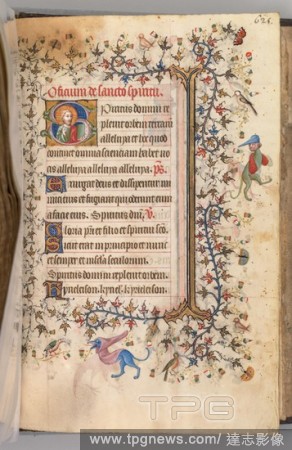 626.
Officium de sancto spiritu.
Spiritus domini re
plevit orbem terrarum
alleluya et hec quod
continet omnia scienciam habet vo
cis alleluya alleluya alleluya. ps.
Exurgat deus et dissipentur ini
mici eius et fugiant qui oderunt eum
a facie eius. Spiritus dni. v
Gloria pri et filio et spiritui sco.
Sicut erat in principio et nunc
et semper et in secula seculorum.
Spiritus domini replevit orbem.
Kyrieleison. kyriel. kyrieleison.
TPG
www.tpgnews.com / 達志影像